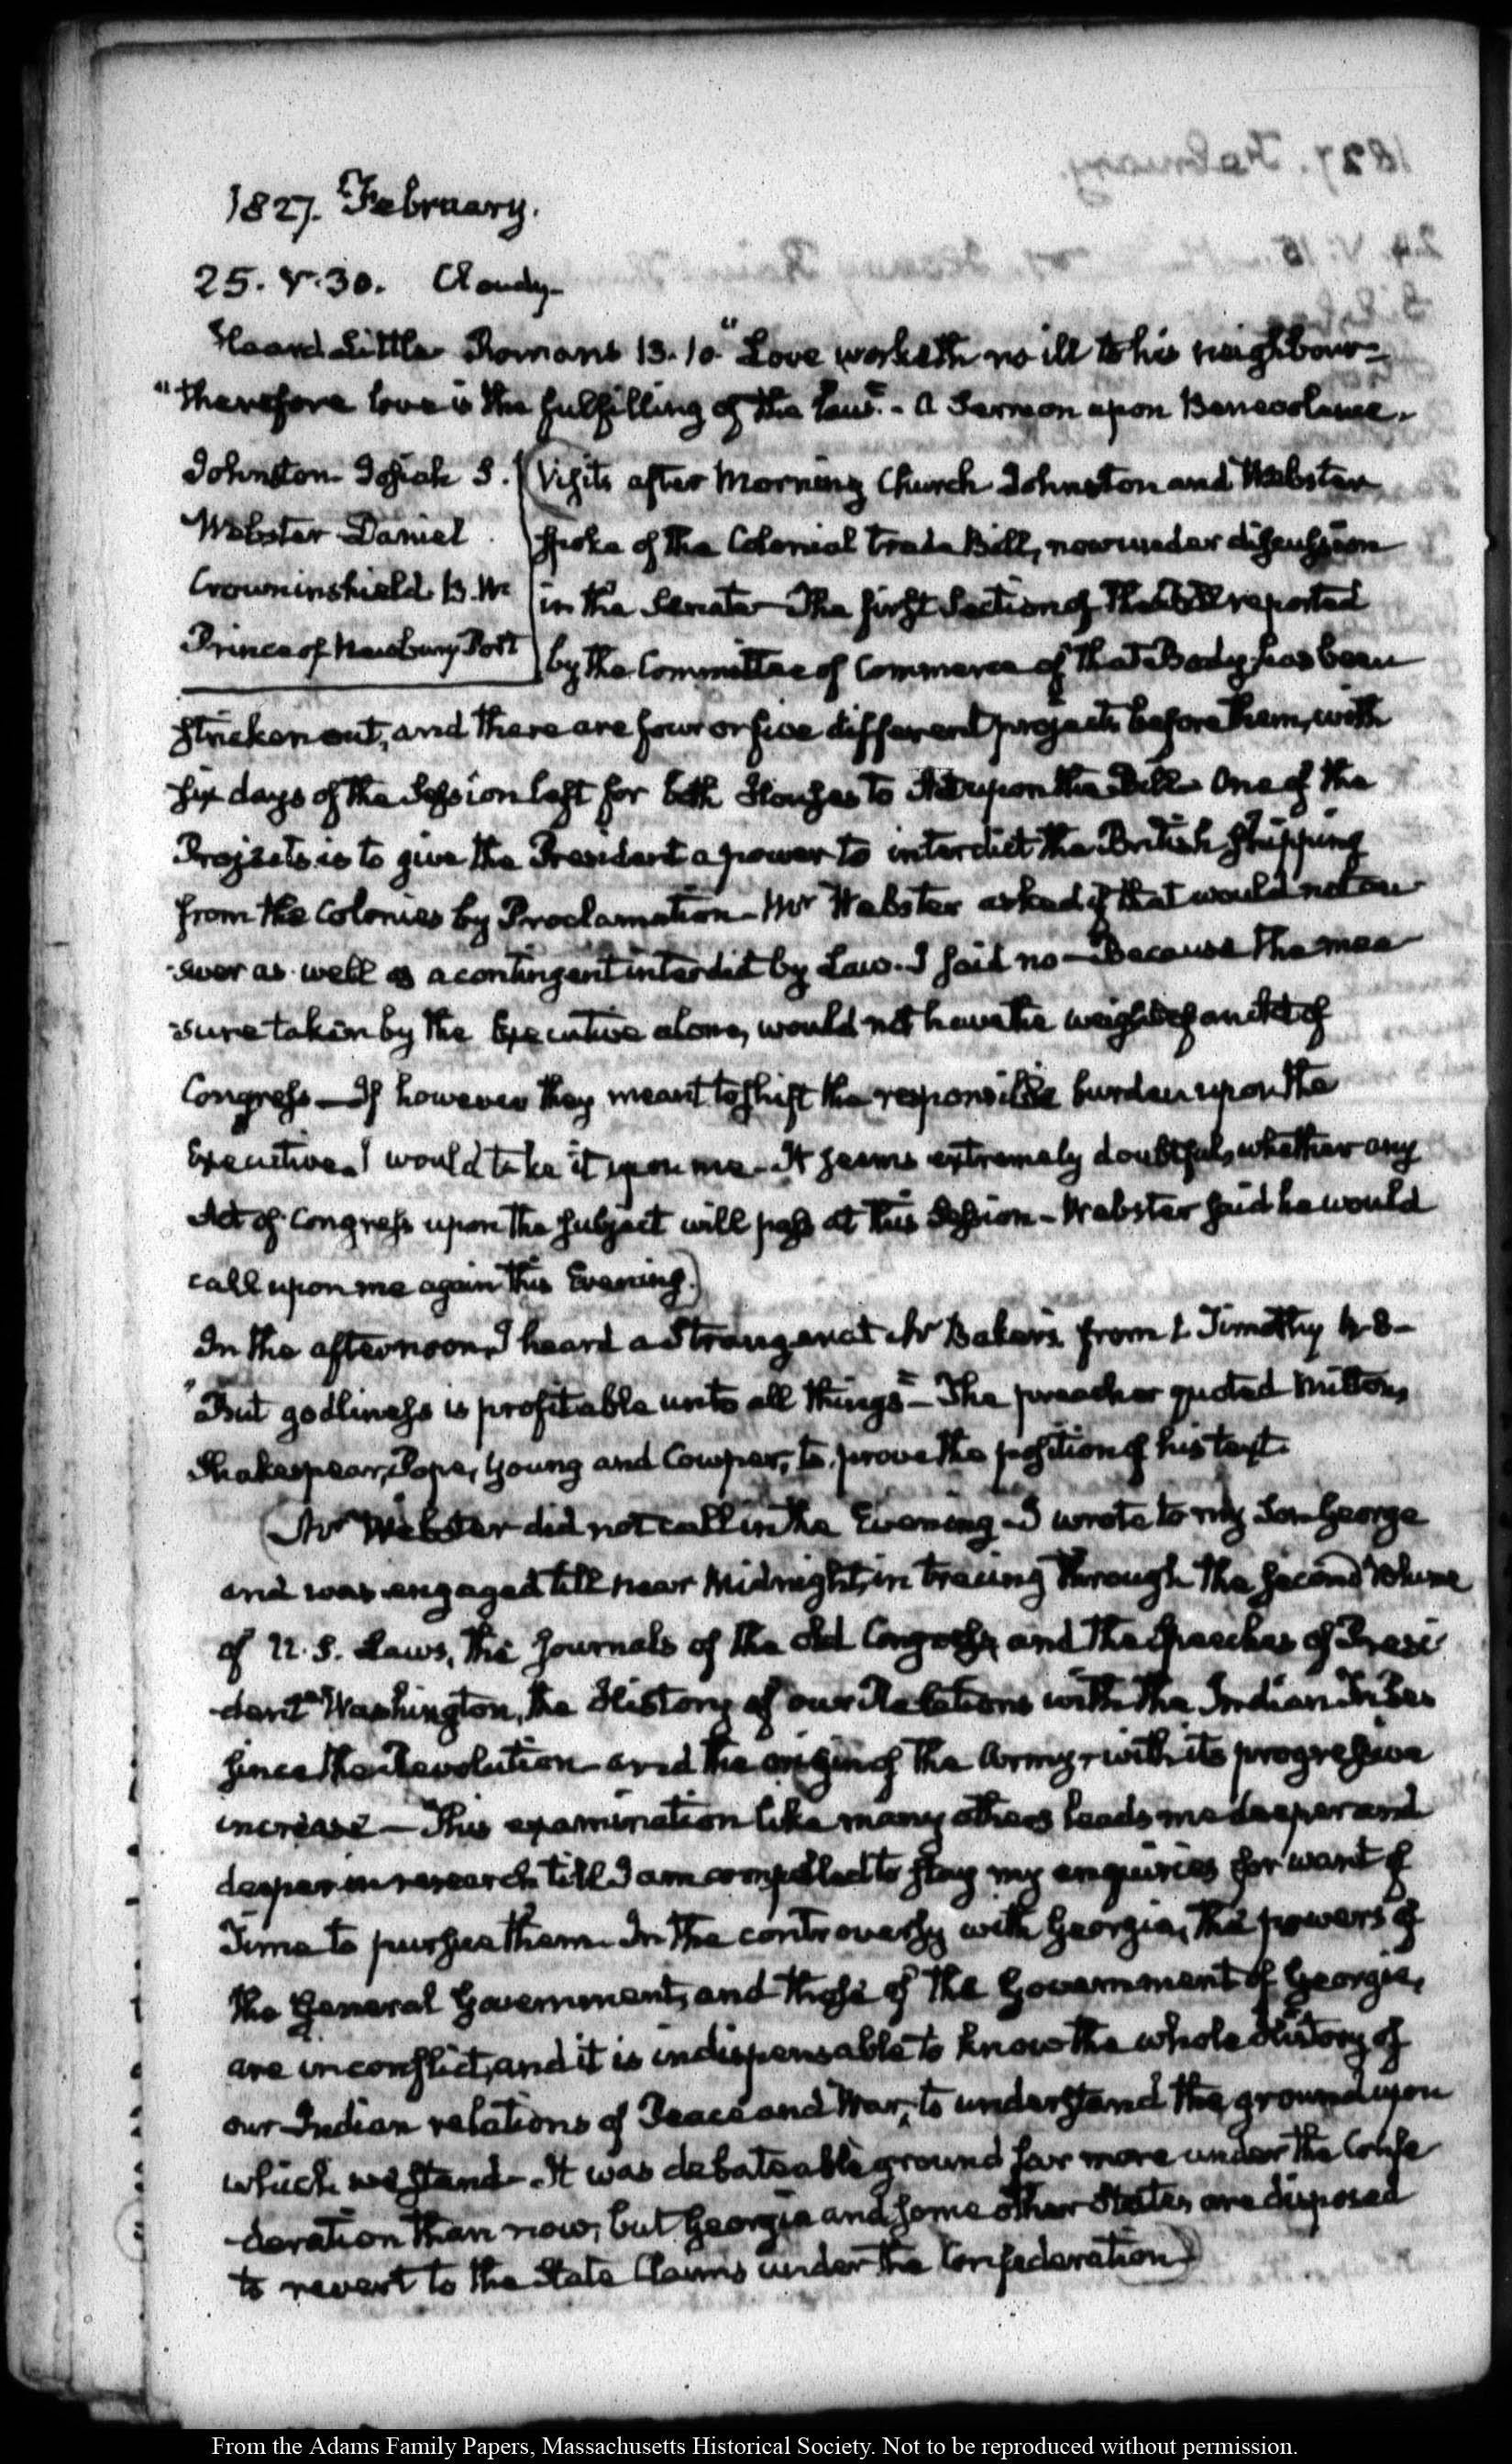 1827. February.
25. V. 30. Cloudy.
Heard Little Romans 13. 10. "Love worketh no ill to his neighbour—
"therefore love is the fulfilling of the Law." - A Sermon upon Benevolence.
Johnston Josiah S.
Webster Daniel
Crowninshield B. W.
Prince of Newbury Port
(Visits after Morning Church Johnston and Webster
spoke of the Colonial trade Bill, now under discussion
in the Senate— The first Section of the Bill reported
by the Committee of Commerce of that Body has been
stricken out, and there are four or five different projects before them, with
six days of the Session left for both Houses to Act upon the Bill. One of the
Projects is to give the President a power to interdict the British shipping
from the Colonies by Proclamation— Mr Webster asked if that would not an-
-swer as well as a contingent interdict by Law. I said no— Because the mea-
-sure taken by the Executive alone, would not have the weight of an Act of
Congress— If however they meant to shift the responsible burden upon the
Executive I would take it upon me— It seems extremely doubtful, whether any
Act of Congress upon the subject will pass at this Session— Webster said he would
call upon me again this Evening.)
In the afternoon, I heard a Stranger at Mr Baker's from 1. Timothy 4. 8—
"But godliness is profitable unto all things"— The preacher quoted Milton,
Shakespear, Pope, Young and Cowper, to prove the position of his text.
(Mr Webster did not call in the Evening— I wrote to my Son George
and was engaged till near Midnight, in tracing through the second Volume
of U. S. Laws, the Journals of the old Congress, and the Speeches of Presi-
-dent Washington, the History of our Relations with the Indian Tribes
since the Revolution and the origin of the Army, with its progressive
increase— This examination like many others leads me deeper and
deeper in research till I am compelled to stay my enquiries for want of
Time to pursue them. In the controversy with Georgia, the powers of
the General Government, and those of the Government of Georgia,
are in conflict, and it is indispensable to know the whole History of
our Indian relations of Peace and War, to understand the ground upon
which we stand— It was debateable ground far more under the Confe-
-deration than now, but Georgia and some other States are disposed
to revert to the State Claims under the Confederation)
From the Adams Family Papers, Massachusetts Historical Society. Not to be reproduced without permission.